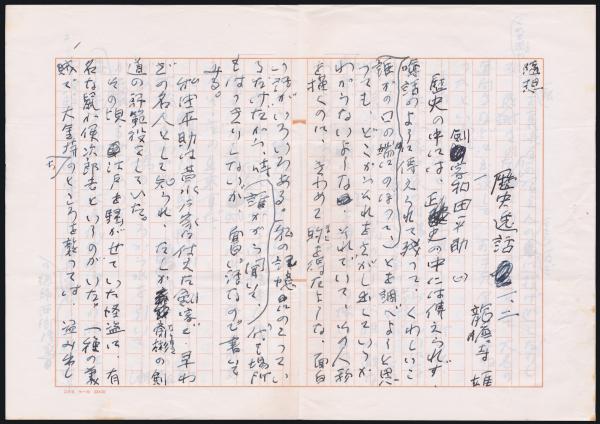 随想
歴史逸話 一、二
龍膽寺 雄
剣 和田平助 (一)
歴史の中には、正史の中には傳えられず、
噺話のように傳えられて残って、くわしいこ
誰かの口の端にのぼって とを調べようと思
っても、どこからそれをさがし出していゝか
わからないような、それでいて、その人物
を描くのに、きわめて 要を得たような、面白
い話がいろいろある。私の記憶にのこってい
るだけだから、時 誰から聞いて、 代も場所
もはっきりしないが、面白い話なので書いて
みる。
和田平助は昔水戸家に仕えた剣客で、早わ
ざの名人として知られ、たしか 斉昭の剣
道の師範役をしていた。
その頃、江戸を騒がせていた怪盗に、有
名な鼠小僧次郎吉というのがいた。一種の義
賊で、大金持のところを襲っては、盗み出し